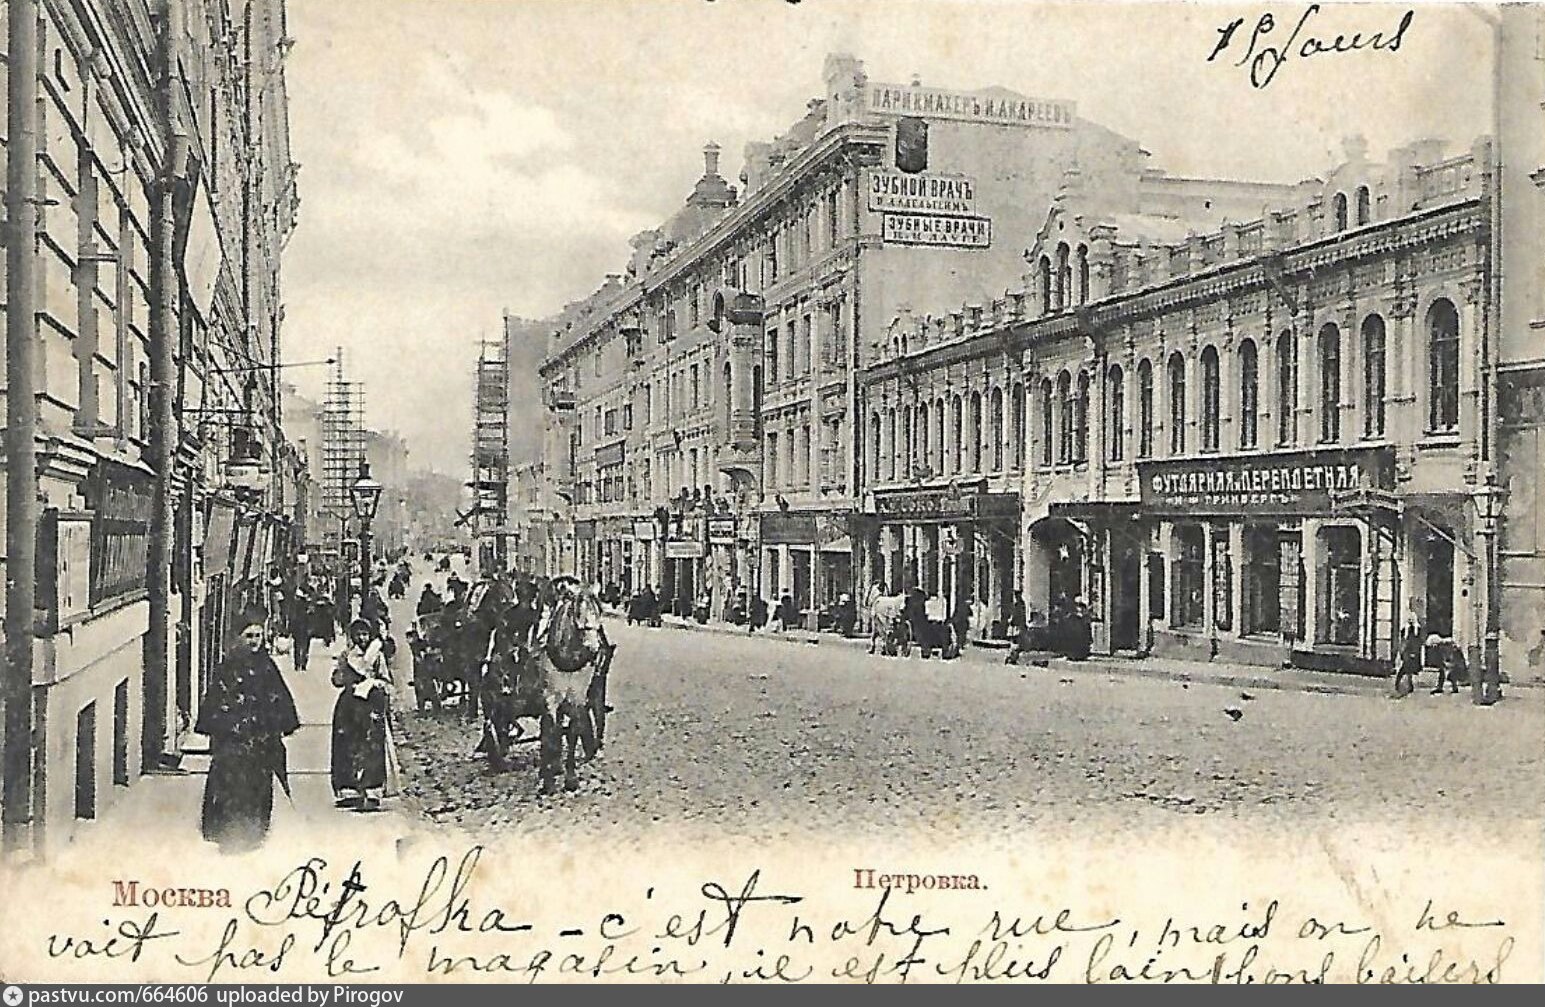 15 Jours
ПАРИКМАХЕРЪ И. АНДРЕЕВЪ
ЗУБНОЙ ВРАЧЪ
ЗУБНЫЕ ВРАЧИ
ФУТЛЯРНАЯ и ПЕРЕПЛЕТНАЯ
Москва
Петровка.
Pétrofka - c'est notre rue, mais on ne
voit pas le magasin, il est plus loin bons baisers
pastvu.com/664606 uploaded by Pirogov